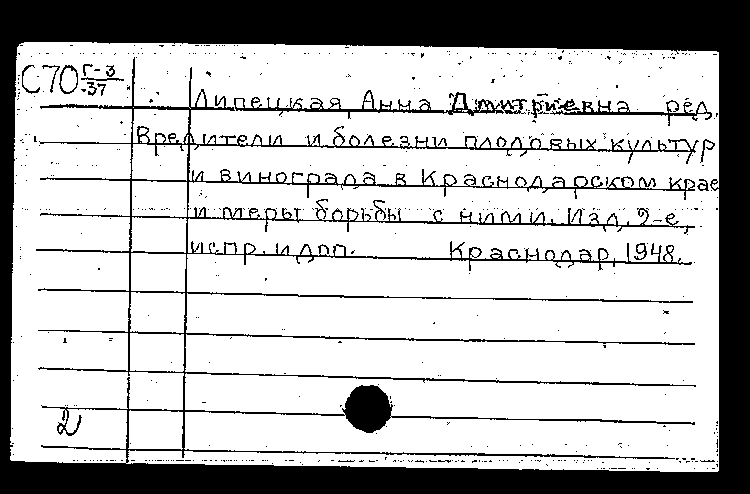 С70 Г-3
37
Липецкая, Анна Дмитриевна ред.
Вредители и болезни плодовых культур
и винограда в Краснодарском крае
и меры борьбы с ними. Изд. 2-е,
испр. и доп. Краснодар, 1948.
2